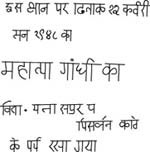 इस स्थान पर दिनांक १२ फर्वरी
सन १९४८ का
महात्मा गांधी का
चिता-
विसर्जन करने
के पूर्व रखा गया